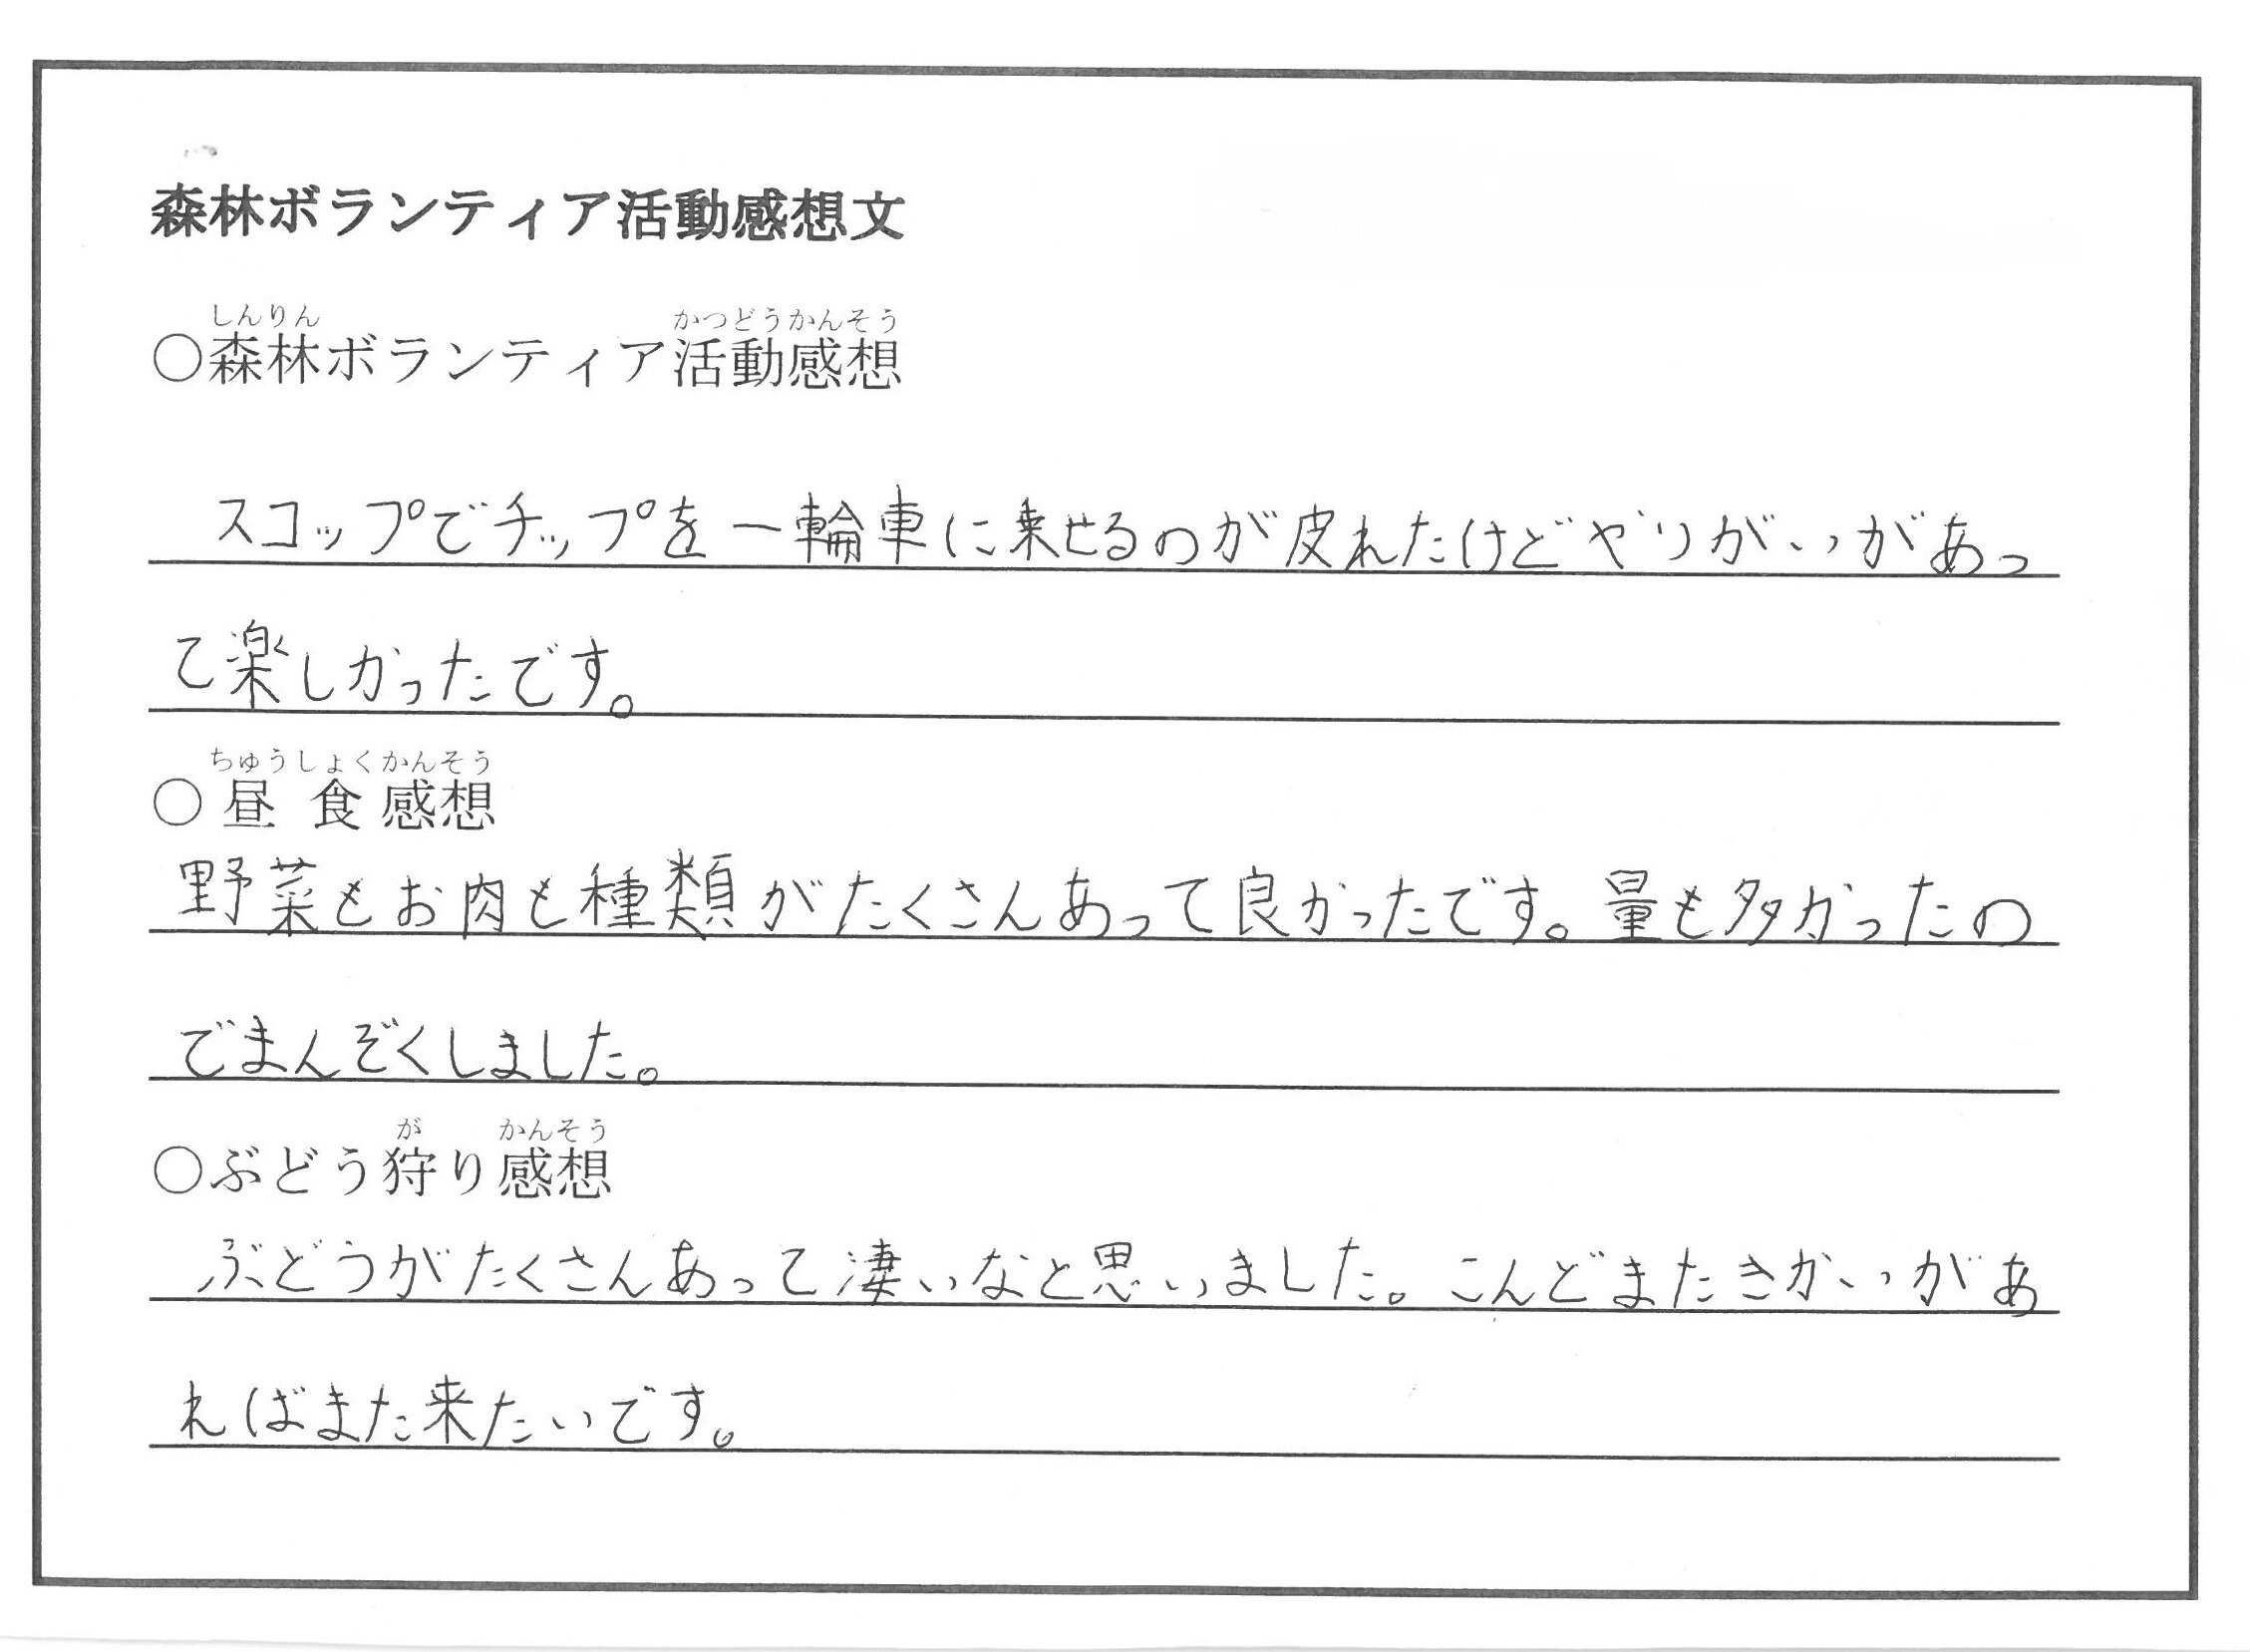 森林ボランティア活動感想文
しんりん かつどうかんそう
○森林ボランティア活動感想
スコップでチップを一輪車に乗せるのが皮れたけどやりがいがあっ
て楽しかったです。
ちゅうしょくかんそう
○昼食感想
野菜もお肉も種類がたくさんあって良かったです。量も多かったの
でまんぞくしました。
が かんそう
○ぶどう狩り感想
ぶどうがたくさんあって凄いなと思いました。こんどまたきかいがあ
ればまた来たいです。